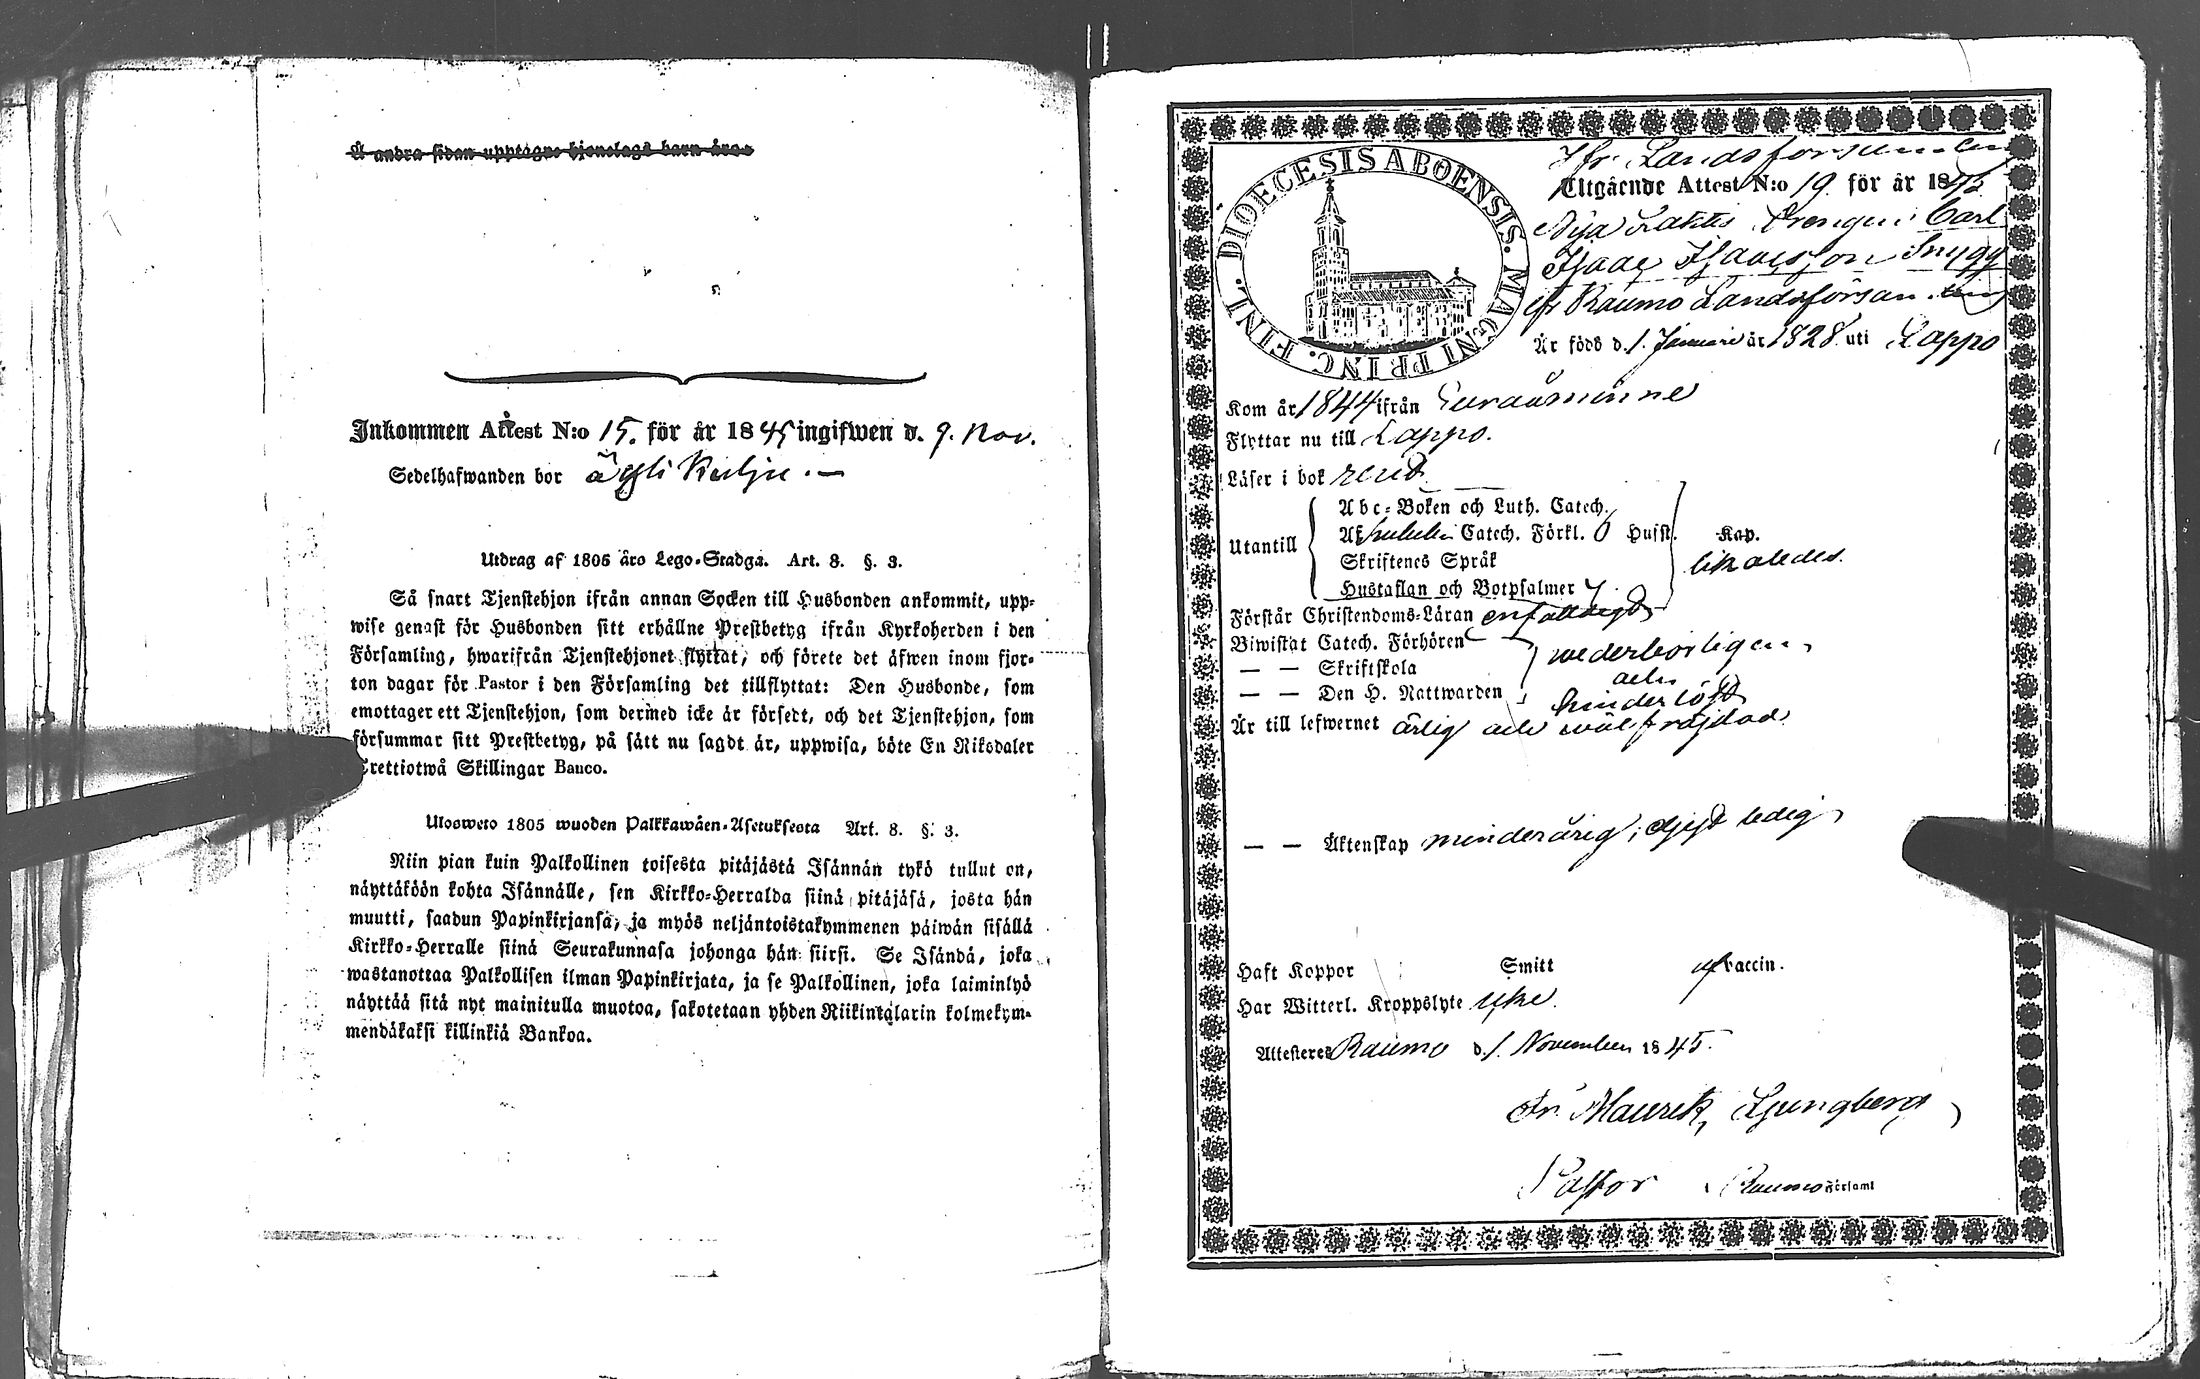 Å andra sidan upptagne hjonelags barn äro:
Inkommen Attest N:o 15. för år 1845 ingifwen d. 9. Nov.
Sedelhafwanden bor å Yli Kulju.
Utdrag af 1805 års Lego-Stadga. Art. 8. §. 3.
Så snart Tjenstehjon ifrån annan Socken till Husbonden ankommit, upp-
wise genast för Husbonden sitt erhållne Prestbetyg ifrån Kyrkoherden i den
Församling, hwarifrån Tjenstehjonet flyttat, och förete det äfwen inom fjor-
ton dagar för Pastor i den Församling det tillflyttat: Den Husbonde, som
emottager ett Tjenstehjon, som dermed icke är försedt, och det Tjenstehjon, som
försummar sitt Prestbetyg, på sätt nu sagdt är, uppwisa, böte En Riksdaler
Trettiotwå Skillingar Banco.
Ulosweto 1805 wuoden Palkkawäen-Asetuksesta Art. 8. §. 3.
Niin pian kuin Palkollinen toisesta pitäjästä Isännän tykö tullut on,
näyttäköön kohta Isännälle, sen Kirkko-Herralda siinä pitäjäsä, josta hän
muutti, saadun Papinkirjansa, ja myös neljäntoistakymmenen päiwän sisällä
Kirkko-Herralle siinä Seurakunnasa johonga hän siirsi. Se Isändä, joka
wastanottaa Palkollisen ilman Papinkirjata, ja se Palkollinen, joka laiminlyö
näyttää sitä nyt mainitulla muotoa, sakotetaan yhden Riikintalarin kolmekym-
mendäkaksi killinkiä Bankoa.
DIOECESIS ABOENSIS. MAGNI PRINC. FINL.
Ifr. Landsförsamlin
Utgående Attest N:o 19. för år 1845
Drengen Carl
Isaac Isaacsson Snygg
fr Raumo Landsförsamling
Är född d. 1. Januari år 1828. uti Lappo
Kom år 1844 ifrån Euraåminne
Flyttar nu till Lappo.
Läser i bok rent
Abc-Boken och Luth. Catech.
Utantill Af Catech. Förkl. Husst. Kap.
Skriftenes Språk likaledes.
Hustaflan och Botpsalmer
Förstår Christendoms-Läran enfaldigt
Biwistat Catech. Förhören wederbörligen
— — Skriftskola och
— — Den H. Nattwarden hinderlöst
Är till lefwernet ärlig och wälfräjdad.
— — Äktenskap minderårig, ledig
Haft Koppor Smitt Vaccin.
Har Witterl. Kroppslyte icke.
Attesteres Raumo d. 1. November 1845.
Fr. Maurit. Ljungberg
Pastor i Raumo Församl